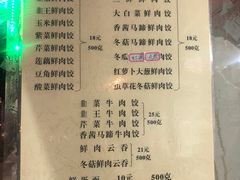 韭菜鲜肉饺
韭王鲜肉饺
玉米鲜肉饺
紫菜鲜肉饺
芹菜鲜肉饺
莲藕鲜肉饺
豆角鲜肉饺
酸菜鲜肉饺
18元
500克
大白菜鲜肉饺
香茜马蹄鲜肉饺
冬菇马蹄鲜肉饺
冬瓜
肉饺
红萝卜大葱鲜肉饺
虫草花冬菇鲜肉饺
18元
500克
韭菜牛肉饺
韭王牛肉饺
芹菜牛肉饺
香茜牛肉饺
25元
500克
鲜肉云吞
冬菇鲜肉云吞
21元
500克
10元
500克